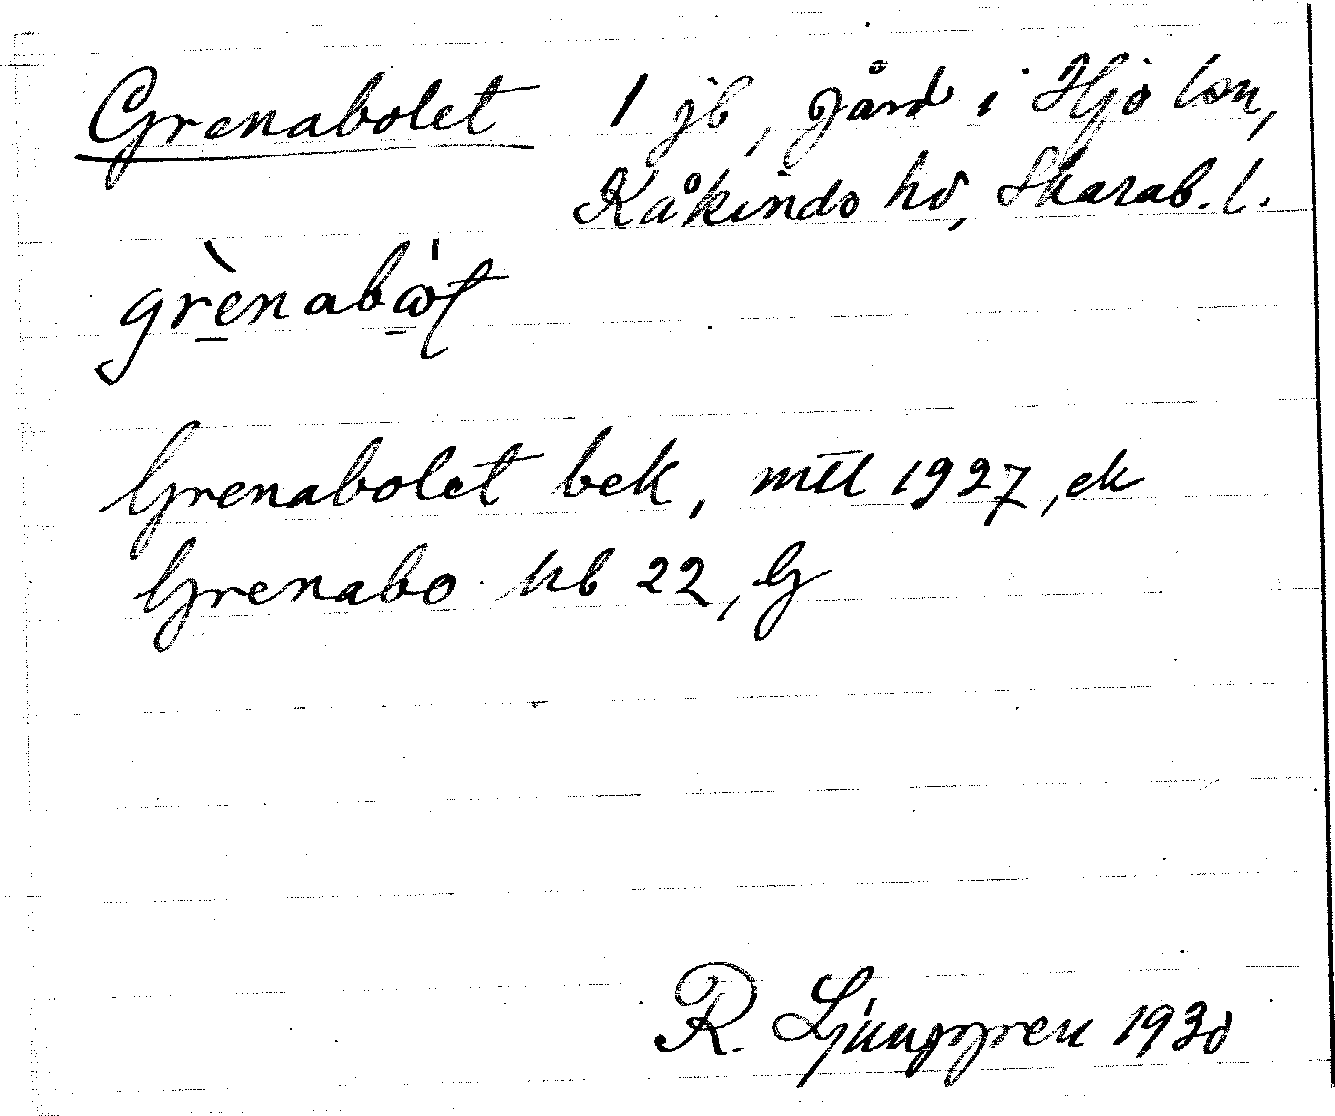 Grenabolet 1 jb, gård i Hjo lsn,
Kåkinds hd, Skarab. l.
Grenabolet bek, mtl 1927, ek
Grenabo hb 22, G
R. Ljunggren 1930